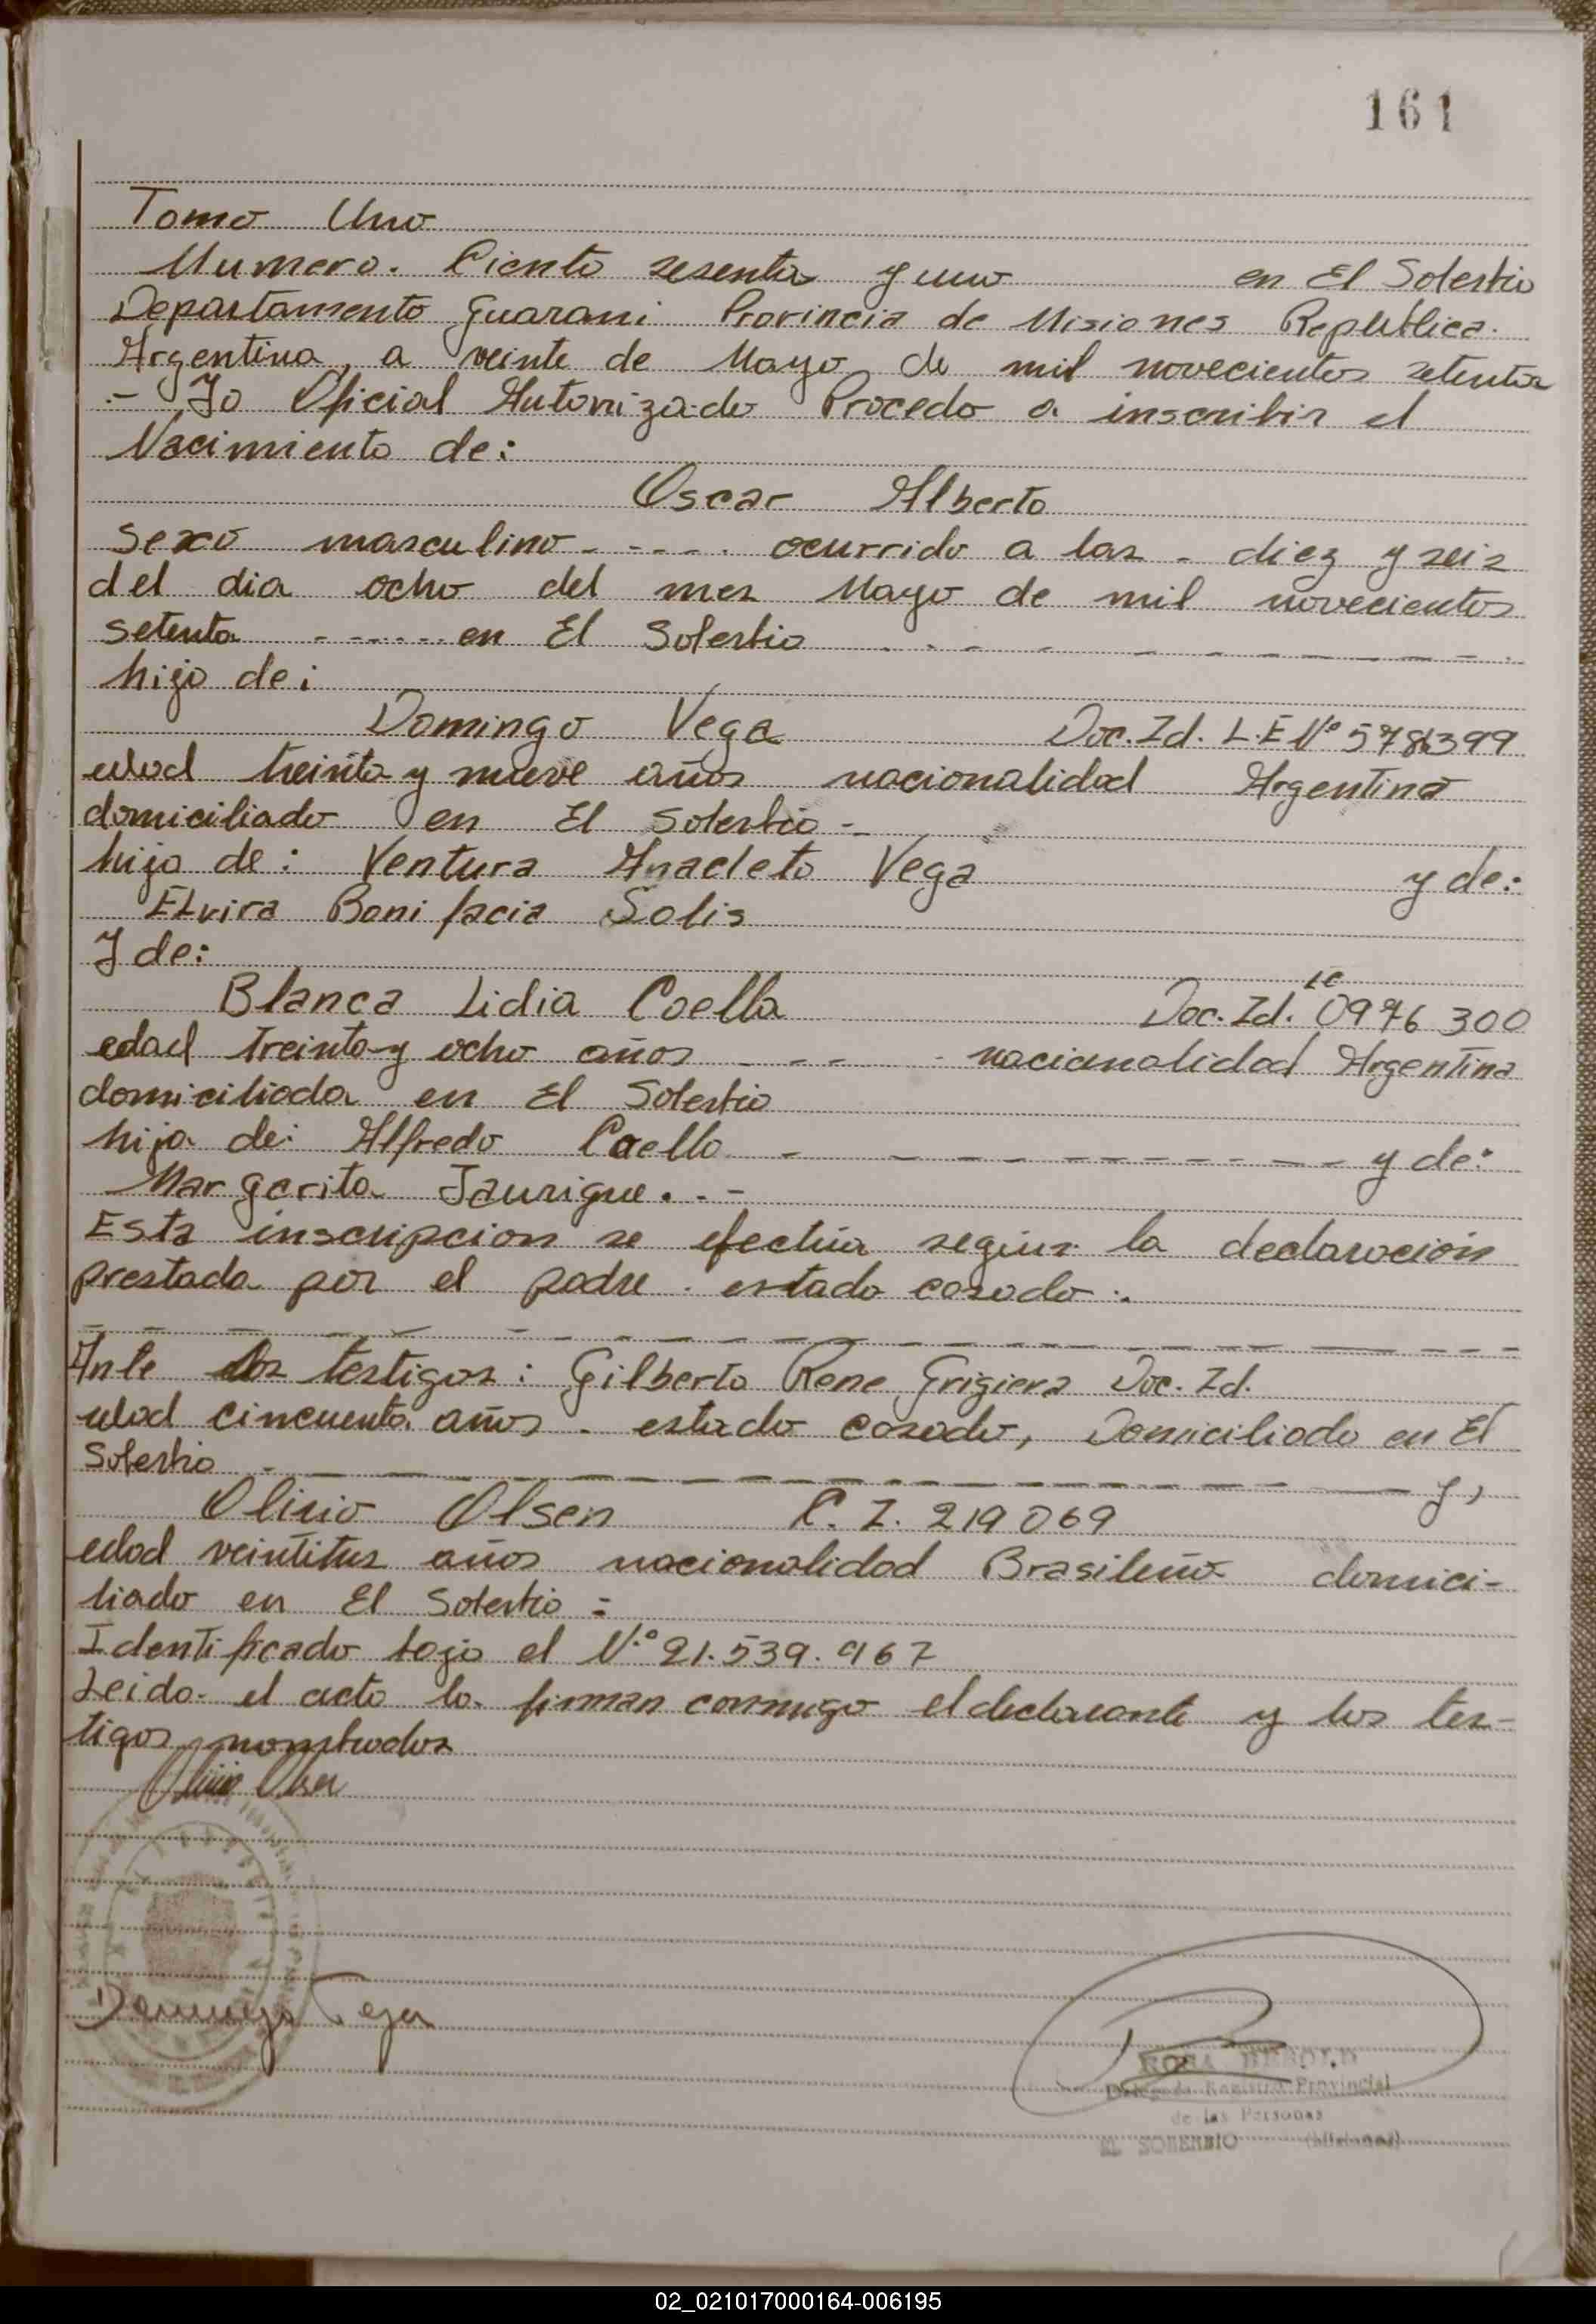 161
Tomo Uno
Numero. Ciento sesenta y uno en El Soberbio
Departamento Guarani Provincia de Misiones Republica.
Argentina, a veinte de Mayo de mil novecientos setenta
.- Yo Oficial Autorizado Procedo a inscribir el
Nacimiento de:
Oscar Alberto
sexo masculino - - - - . ocurrido a las - diez y seis
del dia ocho del mes Mayo de mil novecientos
setenta - - - - - - en El Soberbio
hijo de:
Domingo Vega Doc. Id. L.E Nº
edad treinta y nueve años nacionalidad Argentina
domiciliado en El Soberbio -
hijo de: Ventura Anacleto Vega y de:
Elvira Bonifacia Solis
Y de:
LC
Blanca Lidia Coella Doc. Id. 0976 300
edad treinta y ocho años - - - - nacionalidad Argentina
domiciliada en El Soberbio
hija de: Alfredo Coello - - - - - - - - - - y de:
Margarita Jaurigue. . -
Esta inscripcion se efectúa según la declaración
prestada por el padre . estado casado .
Ante los testigos: Gilberto Rene Grigiera Doc. Id.
edad cincuenta años - estado casado, Domiciliado en El
Soberbio - - - - - - - - - - y,
Olirio Olsen C. I. 219069
edad veintitres años nacionalidad Brasileño domici-
liado en El Soberbio =
Identificado bajo el N.º 21.539.967
Leida el acta la firman conmigo el declarante y los tes-
tigos nombrados
Domingo Vega
Registro Provincial
de las Personas
EL SOBERBIO (Misiones)
02_021017000164-006195